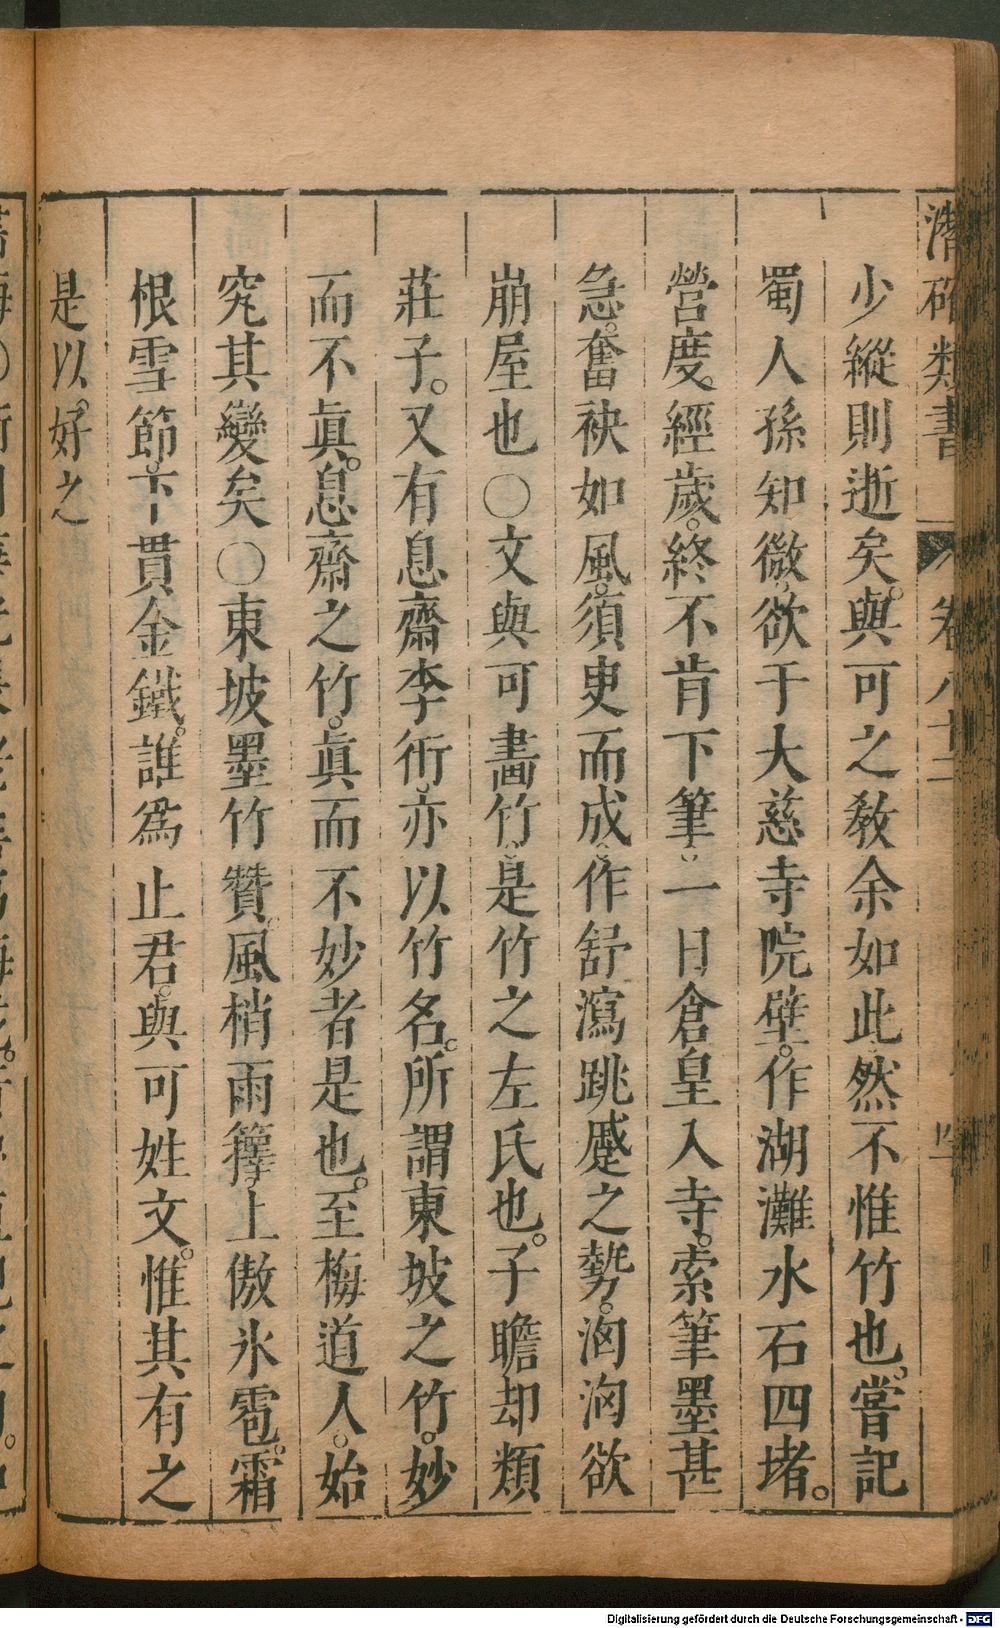 潛確類書 卷八十二
少縱則逝矣。與可之教余如此、然不惟竹也。嘗記
蜀人孫知微、欲于大慈寺院壁。作湖灘水石四堵。
營度。經歲。終不肯下筆、一日倉皇入寺。索筆墨甚
急。奮袂如風。須臾而成、作舒瀉跳蹙之勢。洶洶欲
崩屋也○文與可畵竹、是竹之左氏也。子瞻却類
莊子。又有息齋李衎。亦以竹名。所謂東坡之竹。妙
而不眞。息齋之竹。眞而不妙者是也。至梅道人。始
究其變矣○東坡墨竹贊。風梢雨籜。上傲氷雹。霜
根雪節。下貫金鐵。誰爲止君。與可姓文。惟其有之
是以。好之
Digitalisierung gefördert durch die Deutsche Forschungsgemeinschaft - DFG